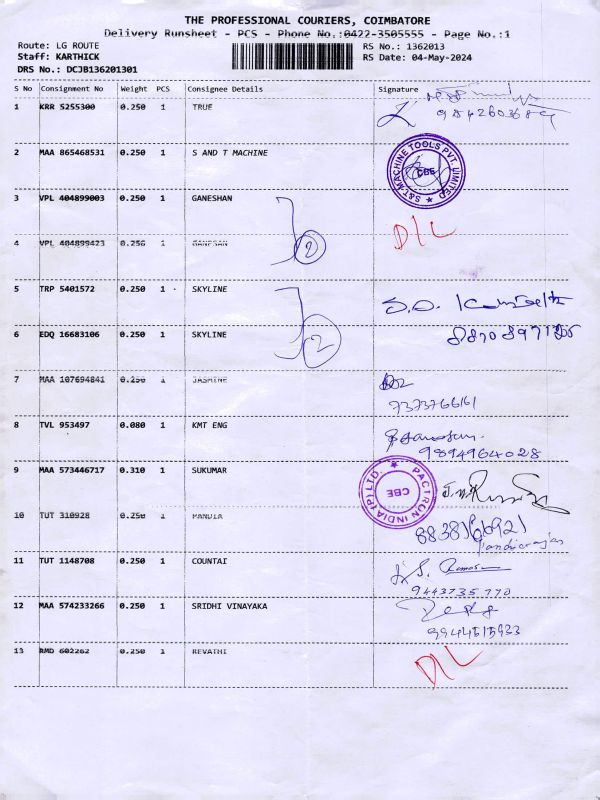 THE PROFESSIONAL COURIERS, COIMBATORE
Delivery Runsheet - PCS - Phone No.:0422-3505555 - Page No.:1
Route: LG ROUTE RS No.: 1362013
Staff: KARTHICK RS Date: 04-May-2024
DRS No.: DCJB136201301
S No Consignment No Weight PCS Consignee Details Signature
1 KRR 5255300 0.250 1 TRUE
2 MAA 865468531 0.250 1 S AND T MACHINE
S&T MACHINE TOOLS PVT. LIMITED
CBE
3 VPL 404899003 0.250 1 GANESHAN
D/L
2
4 VPL 404899423 0.250 1
5 TRP 5401572 0.250 1 SKYLINE
2
6 EDQ 16683106 0.250 1 SKYLINE
7 MAA 107694841 0.250 1 JASMINE
7373766161
8 TVL 953497 0.080 1 KMT ENG
9894964028
9 MAA 573446717 0.310 1 SUKUMAR
PACTRON INDIA (P) LTD.
CBE
10 TUT 310928 0.250 1 PANDIA
8838166921
Pandiarajan
11 TUT 1148708 0.250 1 COUNTAI
9443735770
12 MAA 574233266 0.250 1 SRIDHI VINAYAKA
9944515933
13 RMD 602262 0.250 1 REVATHI
D/L